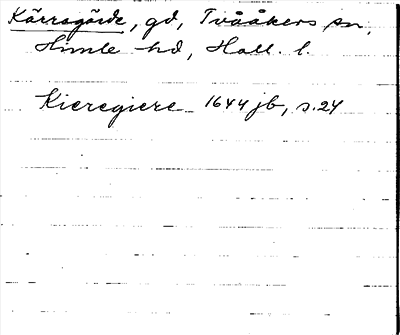 Kärragärde, gd, Tvååkers sn,
Himle hd, Hall. l.
Kieregiere 1644 jb, s. 24